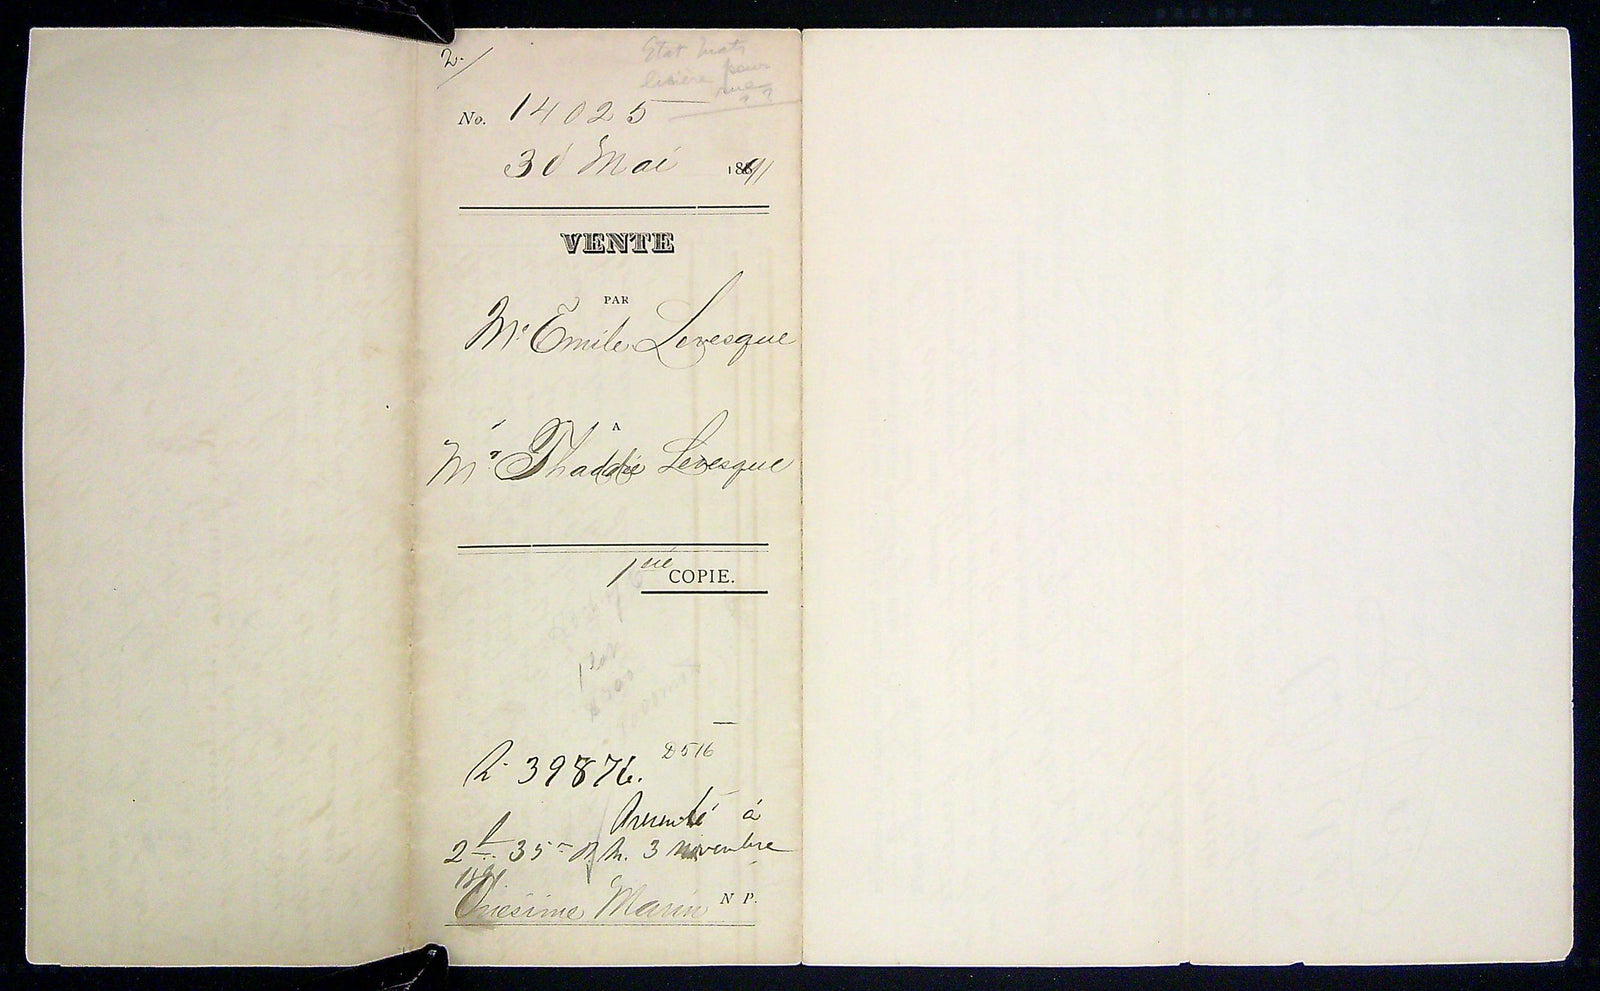 2
No. 14025
30 Mai 1891
VENTE
PAR
Mr Emile Levesque
A
Mr Thaddée Levesque
1ère COPIE.
R. 39876. D516
Présenté à
2h. 35 P.M. 3 novembre
1891.
Onésime Marin N P.